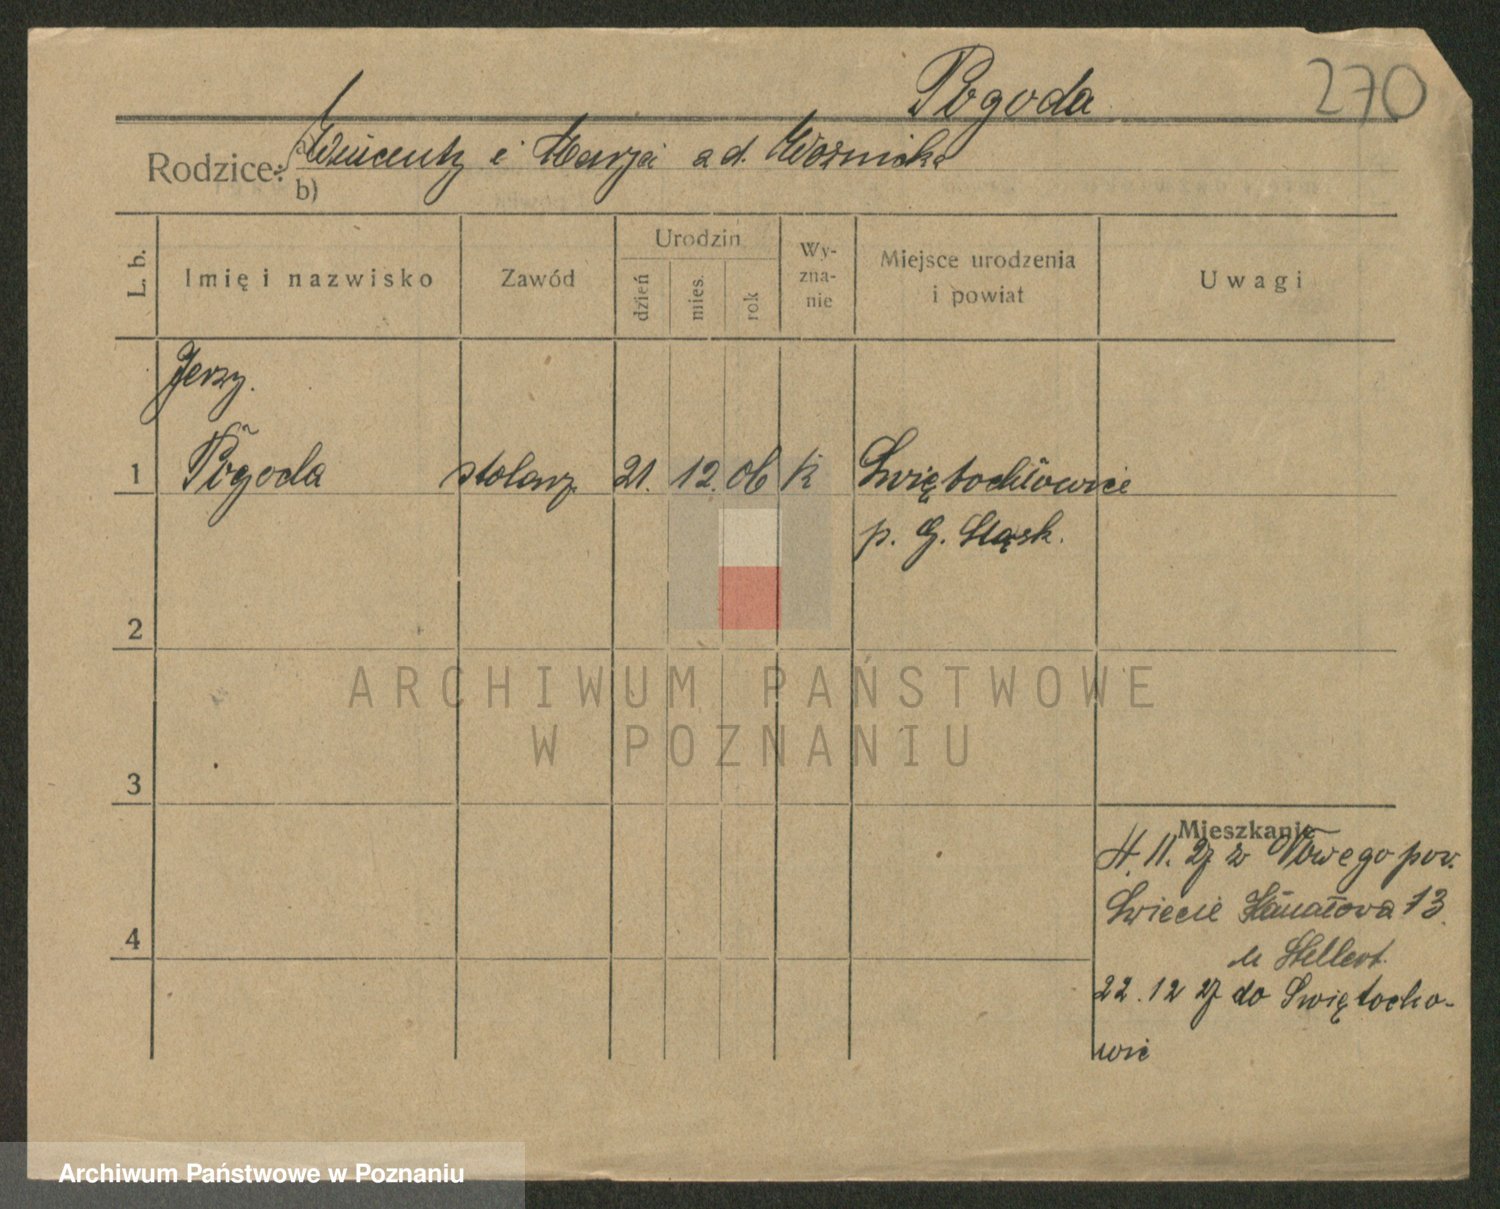 Pogoda
270
Rodzice: a) Wincenty i Marja z d. Woźnicka
b)
L. b.
Imię i nazwisko
Zawód
Urodzin
dzień
mies.
rok
Wy-
zna-
nie
Miejsce urodzenia
i powiat
Uwagi
Jerzy.
1 Pogoda stolarz 21. 12. 06 k Świętochłowice
p. G. Śląsk.
2
ARCHIWUM PAŃSTWOWE
W POZNANIU
3
Mieszkanie
11. 27 z Nowego pow.
Świecie 13.
u Hellert.
4
22. 12 27 do Świętocho-
wic
Archiwum Państwowe w Poznaniu